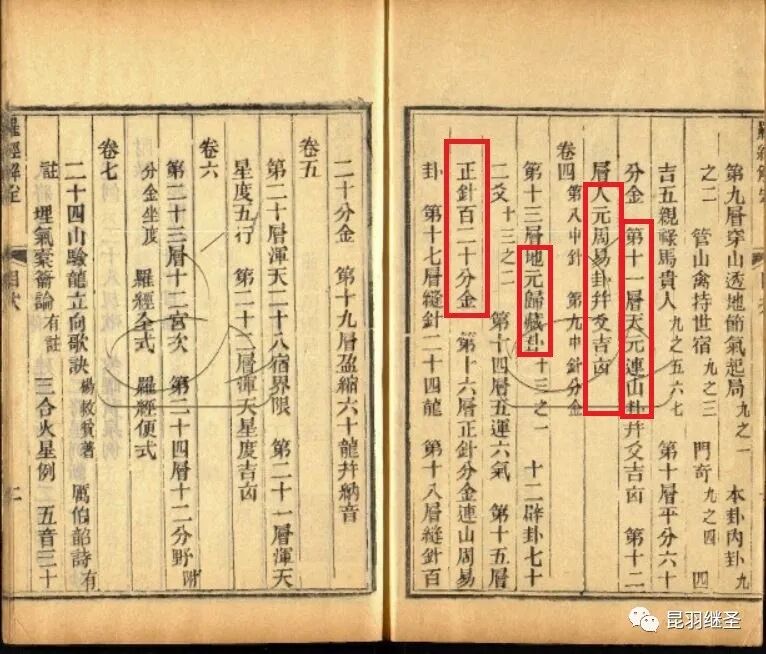 羅經解定
第九層穿山透地節氣起局 九之一 本卦內卦 九
之二 管山禽持世宿 九之三 門奇 九之四 四
吉五親祿馬貴人 九之五六七 第十層平分六十
分金 第十一層天元連山卦幷爻吉凶 第十二
層人元周易卦幷爻吉凶
卷四 第八中針 第九中針分金
第十三層地元歸藏卦 十三之一 十二辟卦七十
二爻 十三之二 第十四層五運六氣 第十五層
正針百二十分金 第十六層正針分金連山周易
卦 第十七層縫針二十四龍 第十八層縫針百
二十分金 第十九層盈縮六十龍幷納音
卷五
第二十層渾天二十八宿界限 第二十一層渾天
星度五行 第二十二層渾天星度吉凶
卷六
第二十三層十二宮次 第二十四層十二分野 附
分金坐度 羅經全式 羅經便式
卷七
二十四山驗龍立向歌訣 楊救貧著 厲伯韶詩 有
註 埋氣索籥論 有註 三合火星例 五音三十
羅經解定 目次 二
昆羽继圣